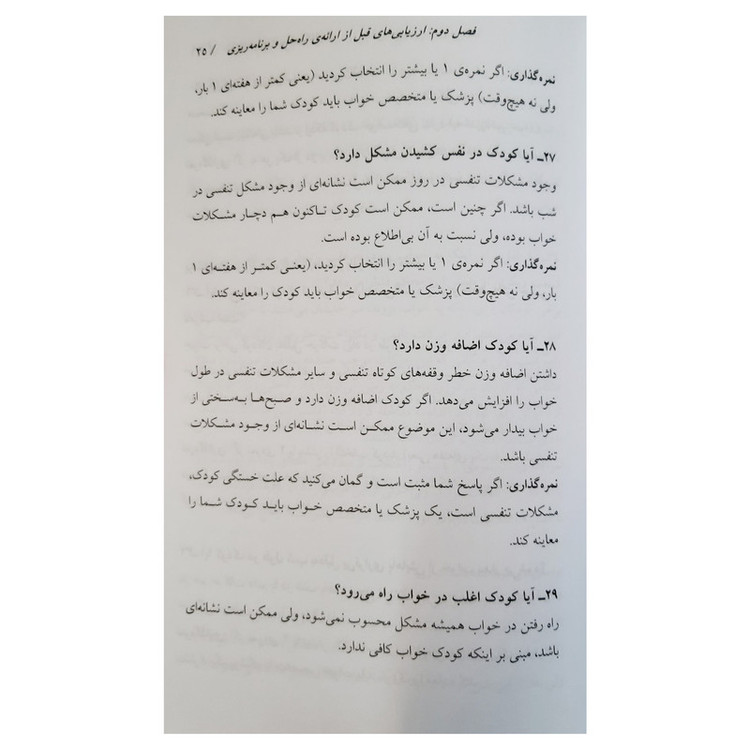 فصل دوم: ارزیابی‌های قبل از ارائه‌ی راه‌حل و برنامه‌ریزی / ۲۵
نمره‌گذاری: اگر نمره‌ی ۱ یا بیشتر را انتخاب کردید (یعنی کمتر از هفته‌ای ۱ بار،
ولی نه هیچ‌وقت) پزشک یا متخصص خواب باید کودک شما را معاینه کند.
۲۷ـ آیا کودک در نفس کشیدن مشکل دارد؟
وجود مشکلات تنفسی در روز ممکن است نشانه‌ای از وجود مشکل تنفسی در
شب باشد. اگر چنین است، ممکن است کودک تاکنون هم دچار مشکلات
خواب بوده، ولی نسبت به آن بی‌اطلاع بوده است.
نمره‌گذاری: اگر نمره‌ی ۱ یا بیشتر را انتخاب کردید، (یعنی کمتر از هفته‌ای ۱
بار، ولی نه هیچ‌وقت) پزشک یا متخصص خواب باید کودک را معاینه کند.
۲۸ـ آیا کودک اضافه وزن دارد؟
داشتن اضافه وزن خطر وقفه‌های کوتاه تنفسی و سایر مشکلات تنفسی در طول
خواب را افزایش می‌دهد. اگر کودک اضافه وزن دارد و صبح‌ها به‌سختی از
خواب بیدار می‌شود، این موضوع ممکن است نشانه‌ای از وجود مشکلات
تنفسی باشد.
نمره‌گذاری: اگر پاسخ شما مثبت است و گمان می‌کنید که علت خستگی کودک،
مشکلات تنفسی است، یک پزشک یا متخصص خواب باید کودک شما را
معاینه کند.
۲۹ـ آیا کودک اغلب در خواب راه می‌رود؟
راه رفتن در خواب همیشه مشکل محسوب نمی‌شود، ولی ممکن است نشانه‌ای
باشد، مبنی بر اینکه کودک خواب کافی ندارد.